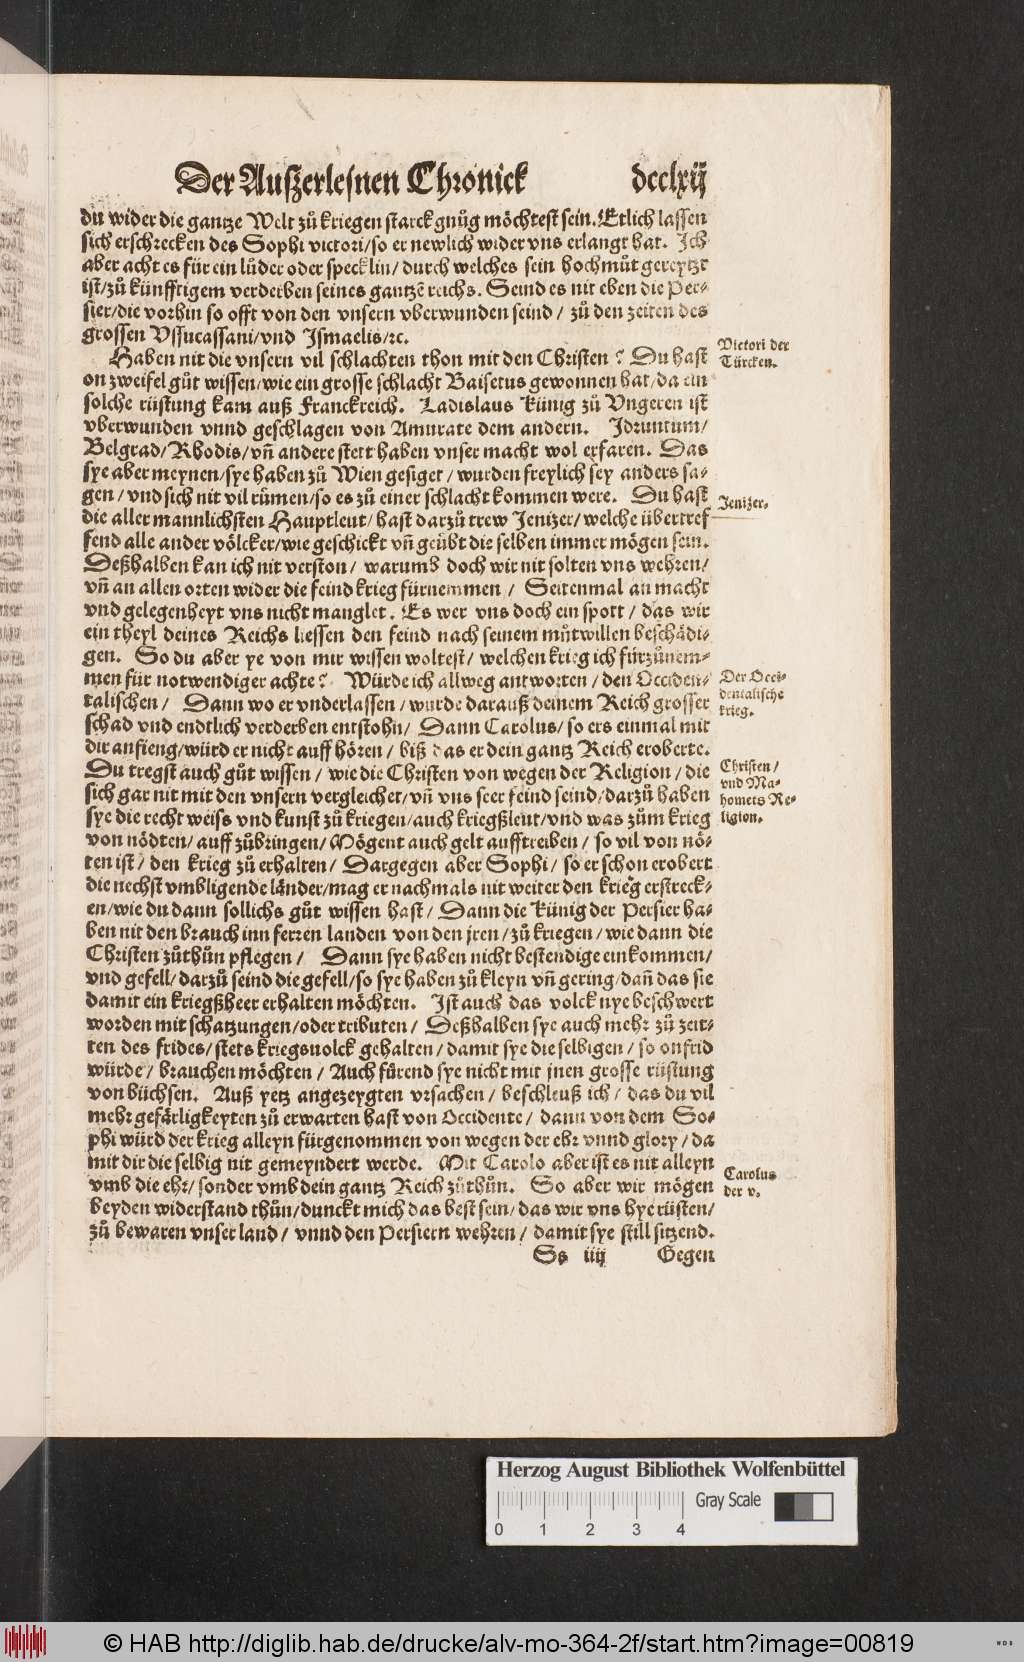 Der Außerlesnen Chronick dcclxij
du wider die gantze Welt zů kriegen starck gnůg möchtest sein. Etlich lassen
sich erschrecken des Sophi victori/so er newlich wider vns erlangt hat. Ich
aber acht es für ein lůder oder specklin/durch welches sein hochmůt gereytzt
ist/zů künfftigem verderben seines gantzē reichs. Seind es nit eben die Per-
sier/die vorhin so offt von den vnsern vberwunden seind/ zů den zeiten des
grossen Vssucassani/vnd Ismaelis/ꝛc.
Haben nit die vnsern vil schlachten thon mit den Christen? Du hast
on zweifel gůt wissen/wie ein grosse schlacht Baisetus gewonnen hat/da ein
solche rüstung kam auß Franckreich. Ladislaus Künig zů Vngeren ist
vberwunden vnnd geschlagen von Amurate dem andern. Idruntum/
Belgrad/Rhodis/vñ andere stett haben vnser macht wol erfaren. Das
sye aber meynen/sye haben zů Wien gesiget/ wurden freylich sey anders sa-
gen/ vnd sich nit vil rümen/so es zů einer schlacht kommen were. Du hast
die aller mannlichsten Hauptleut/ hast darzů trew Jenizer/welche übertref
fend alle ander völcker/wie geschickt vñ geübt die selben immer mögen sein.
Deßhalben kan ich nit verston/ warumb doch wir nit solten vns wehren/
vñ an allen orten wider die feind krieg fürnemmen/ Seitenmal an macht
vnd gelegenheyt vns nicht manglet. Es wer vns doch ein spott/ das wir
ein theyl deines Reichs liessen den feind nach seinem můtwillen beschädi-
gen. So du aber ye von mir wissen woltest/ welchen krieg ich fürzůnem-
men für notwendiger achte? Würde ich allweg antworten/ den Occiden-
talischen/ Dann wo er vnderlassen/ wurde darauß deinem Reich grosser
schad vnd endtlich verderben entstohn/ Dann Carolus/ so ers einmal mit
dir anfieng/würd er nicht auff hören/ biß das er dein gantz Reich eroberte.
Du tregst auch gůt wissen/ wie die Christen von wegen der Religion/ die
sich gar nit mit den vnsern vergleichet/vñ vns seer feind seind/darzů haben
sye die recht weiss vnd kunst zů kriegen/auch kriegßleut/vnd was zům krieg
von nödten/ auff zůbringen/Mögent auch gelt aufftreiben/ so vil von nö-
ten ist/ den krieg zů erhalten/ Dargegen aber Sophi/ so er schon erobert
die nechst vmbligende länder/mag er nachmals nit weiter den krieg erstreck-
en/wie du dann sollichs gůt wissen hast/ Dann die Künig der Persier ha-
ben nit den brauch inn ferren landen von den jren/zů kriegen/ wie dann die
Christen zůthůn pflegen/ Dann sye haben nicht bestendige einkommen/
vnd gefell/ darzů seind die gefell/so sye haben zů kleyn vñ gering/dañ das sie
damit ein kriegßheer erhalten möchten. Ist auch das volck nye beschwert
worden mit schatzungen/oder tributen/ Deßhalben sye auch mehr zů zeit-
ten des frides/stets kriegsuolck gehalten/damit sye die selbigen/ so onfrid
würde/ brauchen möchten/ Auch fürend sye nicht mit jnen grosse rüstung
von büchsen. Auß yetz angezeygten vrsachen/ beschleuß ich/ das du vil
mehr gefärligkeyten zů erwarten hast von Occidente/ dann von dem So-
phi würd der krieg alleyn fürgenommen von wegen der ehr vnnd glory/ da
mit dir die selbig nit gemeyndert werde. Mit Carolo aber ist es nit alleyn
vmb die ehr/ sonder vmb dein gantz Reich zůthůn. So aber wir mögen
beyden widerstand thůn/dunckt mich das best sein/das wir vns hye rüsten/
zů bewaren vnser land/ vnnd den Persiern wehren/ damit sye still sitzend.
Ss iiij Gegen
Victori der
Türcken.
Jenizer.
Der Occi-
dentalische
krieg.
Christen/
vnd Ma-
homets Re-
ligion.
Carolus
der v.
Herzog August Bibliothek Wolfenbüttel
Gray Scale
0 1 2 3 4
© HAB http://diglib.hab.de/drucke/alv-mo-364-2f/start.htm?image=00819